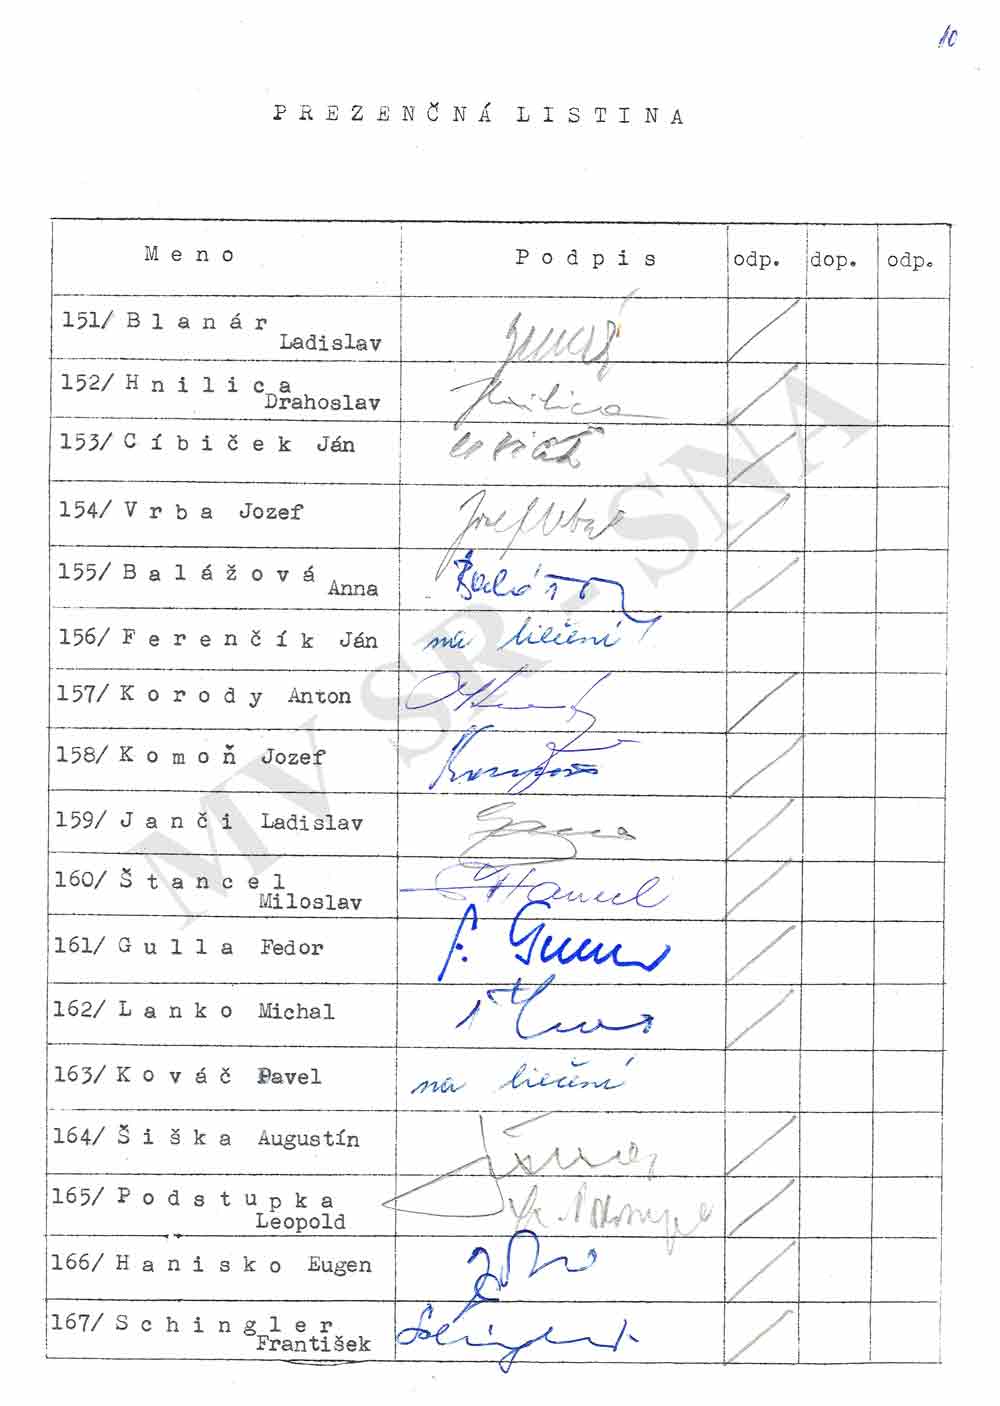 10
PREZENČNÁ LISTINA
Meno Podpis odp. dop. odp.
151/ Blanár
Ladislav
152/ Hnilica
Drahoslav
Hnilica
153/ Cíbiček Ján
154/ Vrba Jozef
Jozef Vrba
155/ Balážová
Anna
156/ Ferenčík Ján na liečení
157/ Korody Anton
158/ Komoň Jozef
159/ Janči Ladislav
160/ Štancel
Miloslav
Štancel
161/ Gulla Fedor
162/ Lanko Michal
163/ Kováč Pavel na liečení
164/ Šiška Augustín
165/ Podstupka
Leopold
166/ Hanisko Eugen
167/ Schingler
František
MV SR - SNA